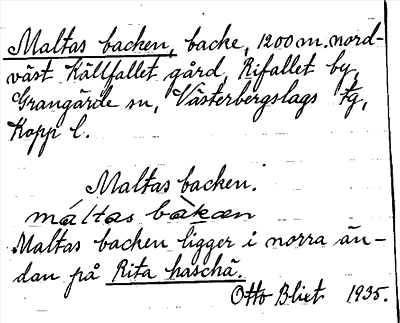 Maltas backen, backe, 1200 m. nord-
väst Källfallet gård, Rifallet by,
Grangärde sn, Västerbergslags fg,
Kopp l.
Maltas backen.
máltas bàkæn
Maltas backen ligger i norra än-
dan på Rita haschä.
Otto Bliet 1935.